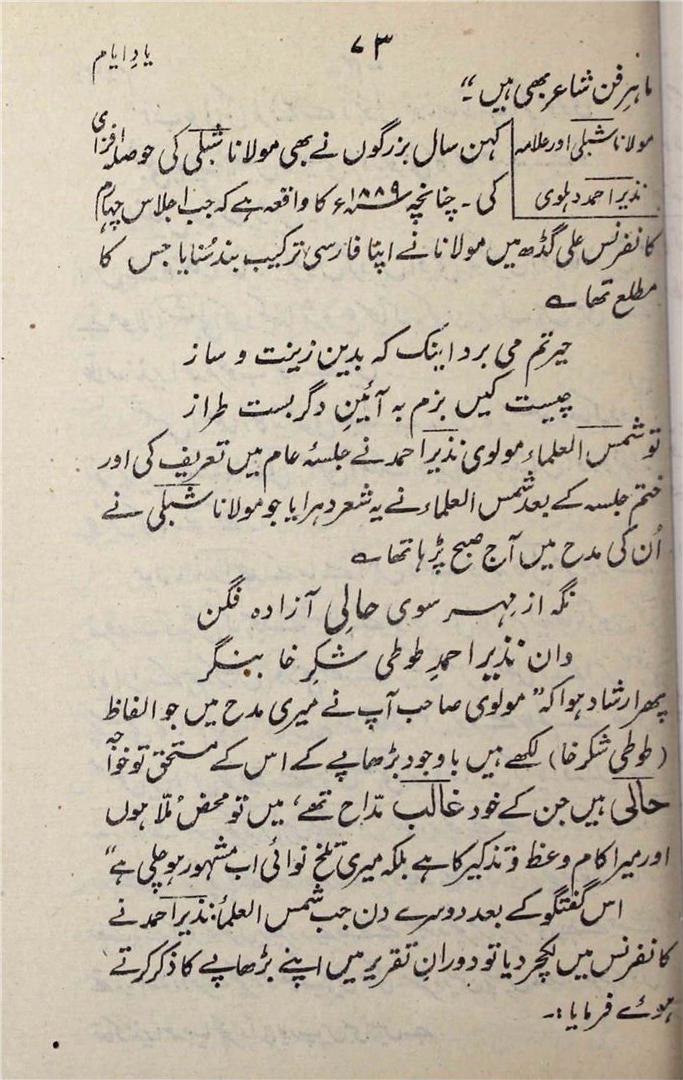 ۷۳
یادِ ایام
ماہرِ فن شاعر بھی ہیں ۔"
مولانا شبلی اور علامہ
نذیر احمد دہلوی
کہن سال بزرگوں نے بھی مولانا شبلی کی حوصلہ افزائی
کی ۔ چنانچہ ۱۸۸۹ء کا واقعہ ہے کہ جب اجلاس چہارم
کانفرنس علی گڈھ میں مولانا نے اپنا فارسی ترکیب بند سُنایا جس کا
مطلع تھا ؎
حیرتم می برد اینک کہ بدین زینت و ساز
چیست کیں بزم بہ آئینِ دگر بست طراز
تو شمس العلماء مولوی نذیر احمد نے جلسۂ عام میں تعریف کی اور
ختم جلسہ کے بعد شمس العلماء نے یہ شعر دہرایا جو مولانا شبلی نے
اُن کی مدح میں آج صبح پڑہا تھا ؎
نگہ از مہر سوی حالی آزادہ فگن
وان نذیر احمدِ طوطی شکر خا بنگر
پھر ارشاد ہوا کہ "مولوی صاحب آپ نے میری مدح میں جو الفاظ
(طوطی شکر خا) لکھے ہیں باوجود بڑھاپے کے اس کے مستحق تو خواجہ
حالی ہیں جن کے خود غالب مدّاح تھے، میں تو محض مُلّا ہوں
اور میرا کام وعظ و تذکیر کا ہے بلکہ میری تلخ نوائی اب مشہور ہو چلی ہے"
اس گفتگو کے بعد دوسرے دن جب شمس العلماء نذیر احمد نے
کانفرنس میں لکچر دیا تو دورانِ تقریر میں اپنے بڑھاپے کا ذکر کرتے
ہوئے فرمایا :۔